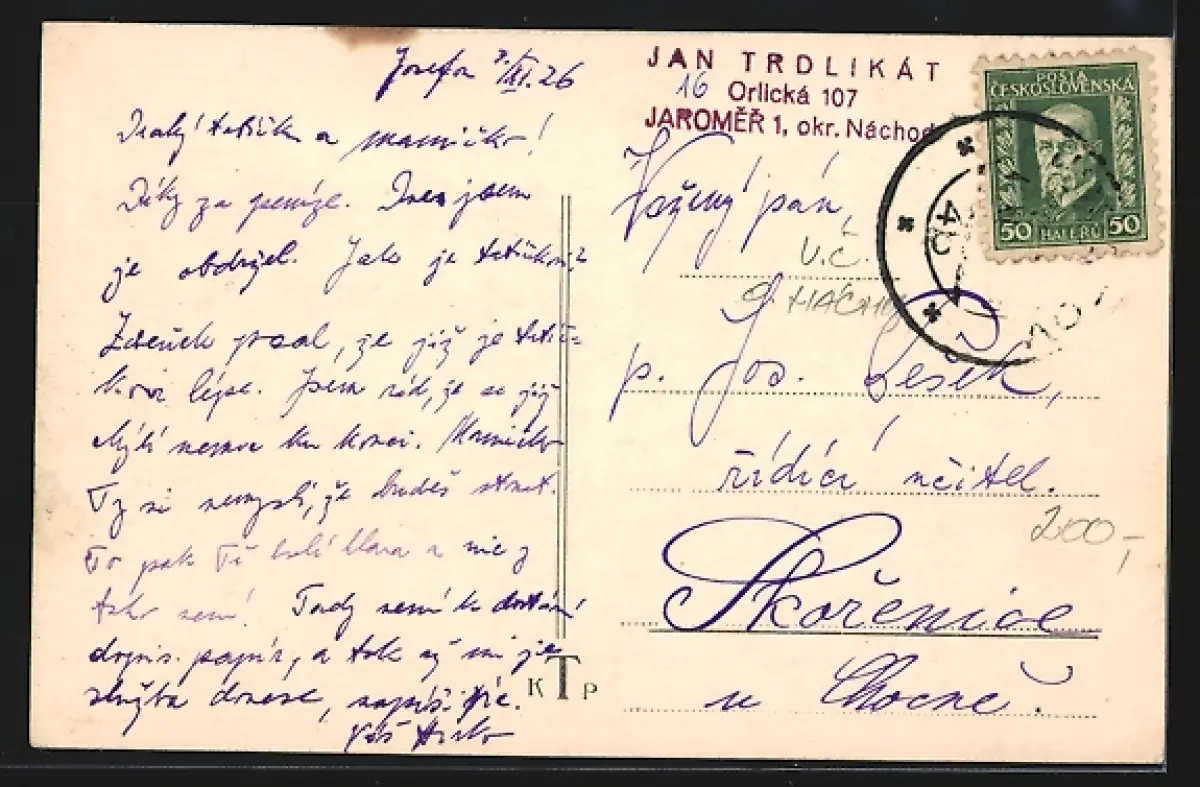 Josefov 7/XI. 26
Drahý tatíčku a maminko!
Díky za peníze. Dnes jsem
je obdržel. Jak je tatíčkovi?
Zdeněk psal, že již je tatíč-
kovi lépe. Jsem rád, že se již
chýlí nemoc ku konci. Maminko
Ty si nemysli, že budeš stonat.
To pak Tě bolí hlava a nic z
toho není! Tady není k dostání
dopis. papír, a tak až mi je
služba donese, napíši více.
Váš
JAN TRDLIKÁT
16 Orlická 107
JAROMĚŘ 1, okr. Náchod
POŠTA
ČESKOSLOVENSKÁ
50 HALÉŘŮ 50
Vážený pán,
U.Č.
p. Jos. Lešek,
řídící učitel.
200,-
Skořenice
u Chocně.
K T P